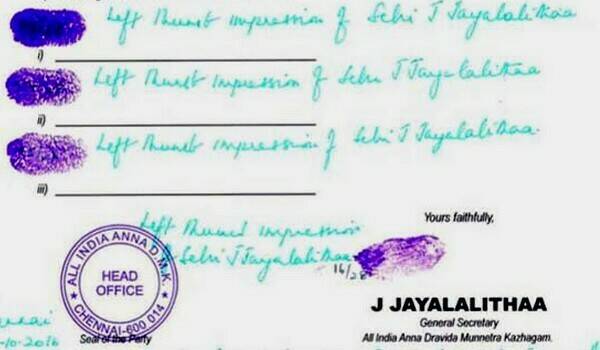 Left Thumb Impression of Selvi J Jayalalithaa
i)
Left Thumb Impression of Selvi J Jayalalithaa
ii)
Left Thumb Impression of Selvi J Jayalalithaa.
iii)
Left Thumb Impression
of Selvi J Jayalalithaa
Yours faithfully,
ALL INDIA ANNA D.M.K.
HEAD
OFFICE
CHENNAI-600 014
J JAYALALITHAA
General Secretary
All India Anna Dravida Munnetra Kazhagam.
-10-2016
Seal of the Party